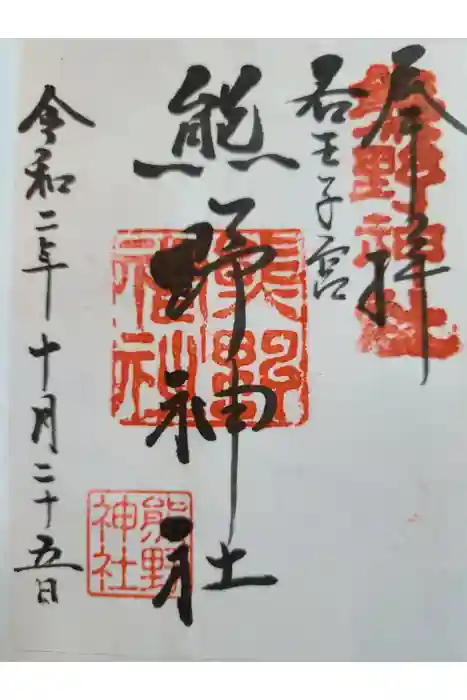 奉拝
若王子宮
熊野神社
令和二年十月二十五日
熊野神社
熊野神社